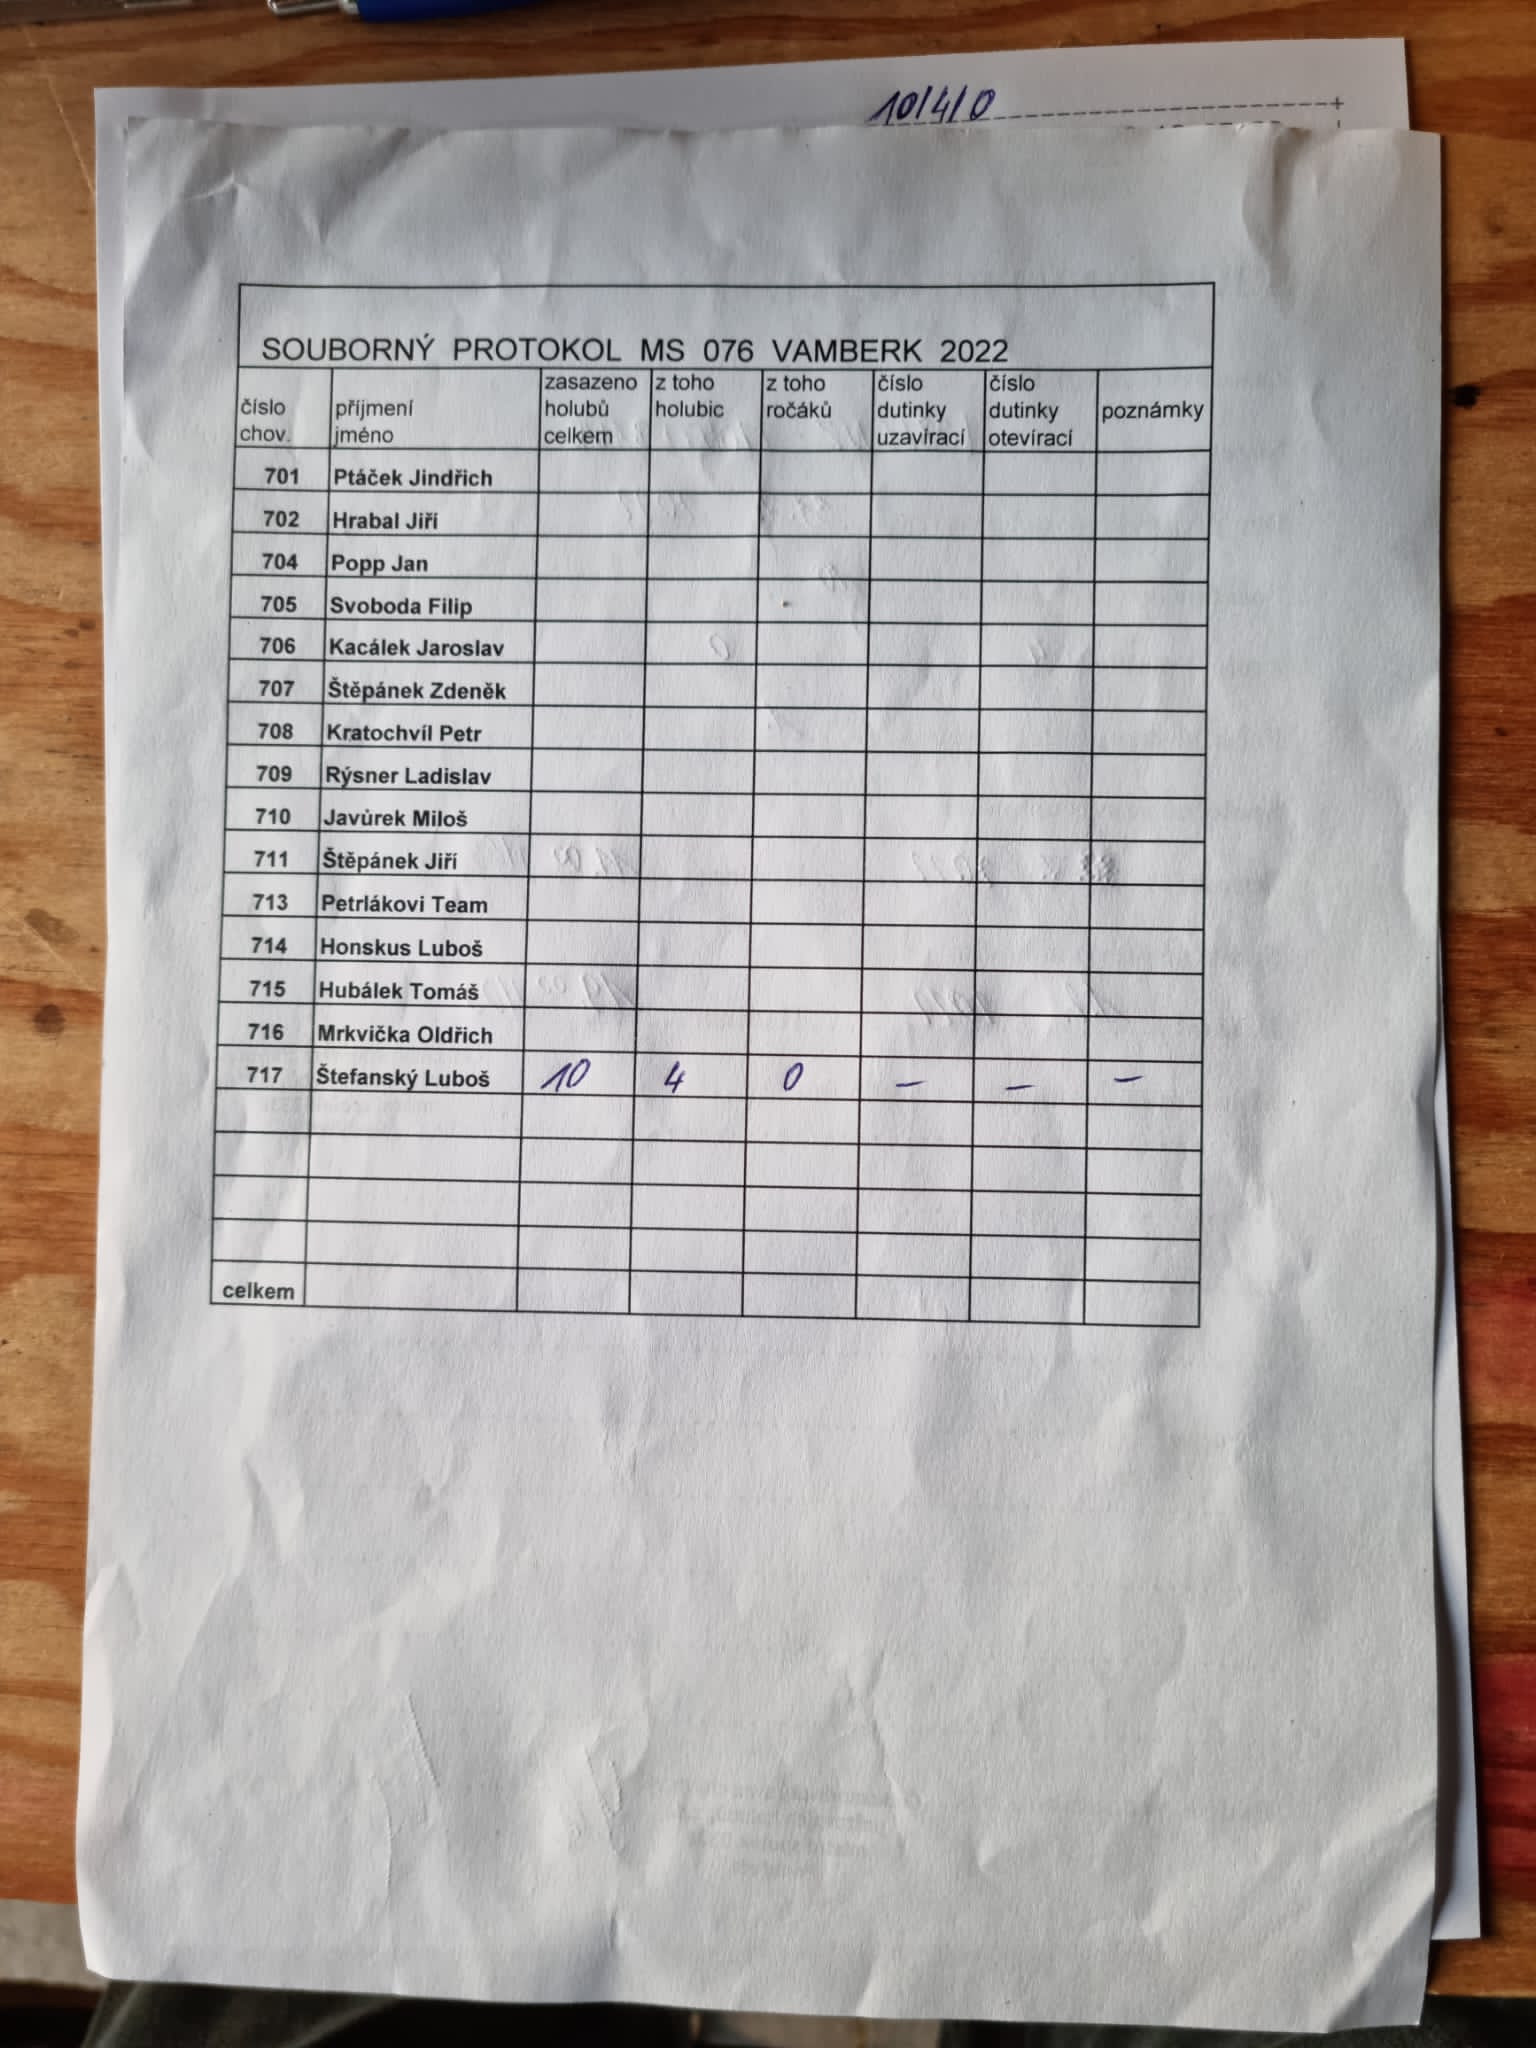 10/4/0
SOUBORNÝ PROTOKOL MS 076 VAMBERK 2022
číslo chov. příjmení jméno zasazeno holubů celkem z toho holubic z toho ročáků číslo dutinky uzavírací číslo dutinky otevírací poznámky
701 Ptáček Jindřich
702 Hrabal Jiří
704 Popp Jan
705 Svoboda Filip
706 Kacálek Jaroslav
707 Štěpánek Zdeněk
708 Kratochvíl Petr
709 Rýsner Ladislav
710 Javůrek Miloš
711 Štěpánek Jiří
713 Petrlákovi Team
714 Honskus Luboš
715 Hubálek Tomáš
716 Mrkvička Oldřich
717 Štefanský Luboš 10 4 0 – – –
celkem